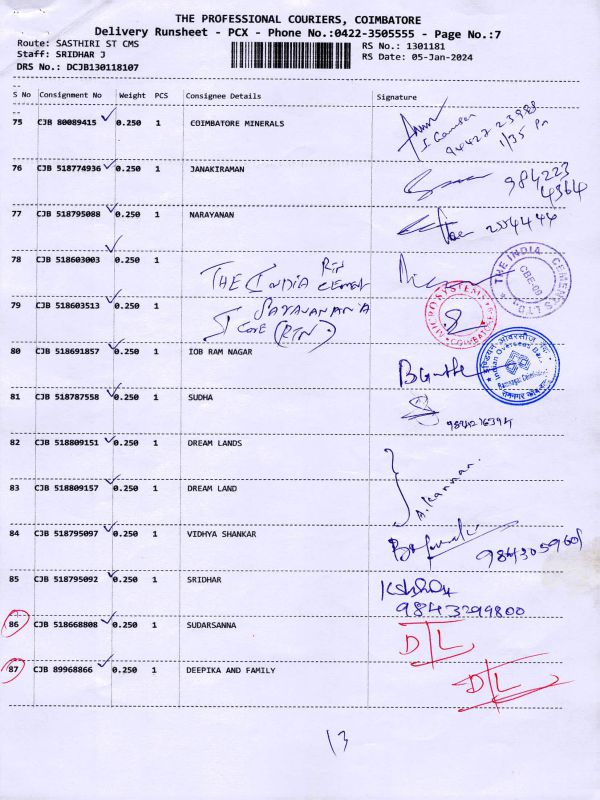 THE PROFESSIONAL COURIERS, COIMBATORE
Delivery Runsheet - PCX - Phone No.:0422-3505555 - Page No.:7
Route: SASTHIRI ST CMS
RS No.: 1301181
Staff: SRIDHAR J
RS Date: 05-Jan-2024
DRS No.: DCJB130118107
S No Consignment No Weight PCS Consignee Details Signature
75 CJB 80089415 0.250 1 COIMBATORE MINERALS
76 CJB 518774936 0.250 1 JANAKIRAMAN
984223
4364
77 CJB 518795088 0.250 1 NARAYANAN
204444
78 CJB 518603003 0.250 1
THE INDIA CEMENT
THE INDIA CEMENTS LTD. CBE-08
79 CJB 518603513 0.250 1
80 CJB 518691857 0.250 1 IOB RAM NAGAR
Indian Overseas Bank
81 CJB 518787558 0.250 1 SUDHA
9842716394
82 CJB 518809151 0.250 1 DREAM LANDS
A. Kannan.
83 CJB 518809157 0.250 1 DREAM LAND
84 CJB 518795097 0.250 1 VIDHYA SHANKAR
85 CJB 518795092 0.250 1 SRIDHAR
9843299800
86 CJB 518668808 0.250 1 SUDARSANNA
D/L
87 CJB 89968866 0.250 1 DEEPIKA AND FAMILY
D/L
13